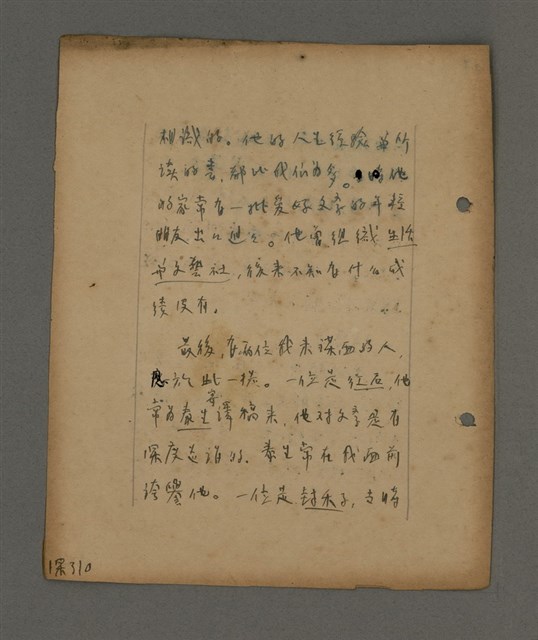 相識的。他的人生經驗與所
讀的書，都比我們為多。時他
的家常有一批愛好文學的年輕
朋友出出進進。他曾組織生活
與文藝社，後來不知有什么成
績沒有。
最後，有兩位我未謀面的人，
應於此一提。一位是，他
常為泰生寄譯稿來，他對文學是有
深度造詣的，泰生常在我面前
誇譽他。一位是封禾子，當時